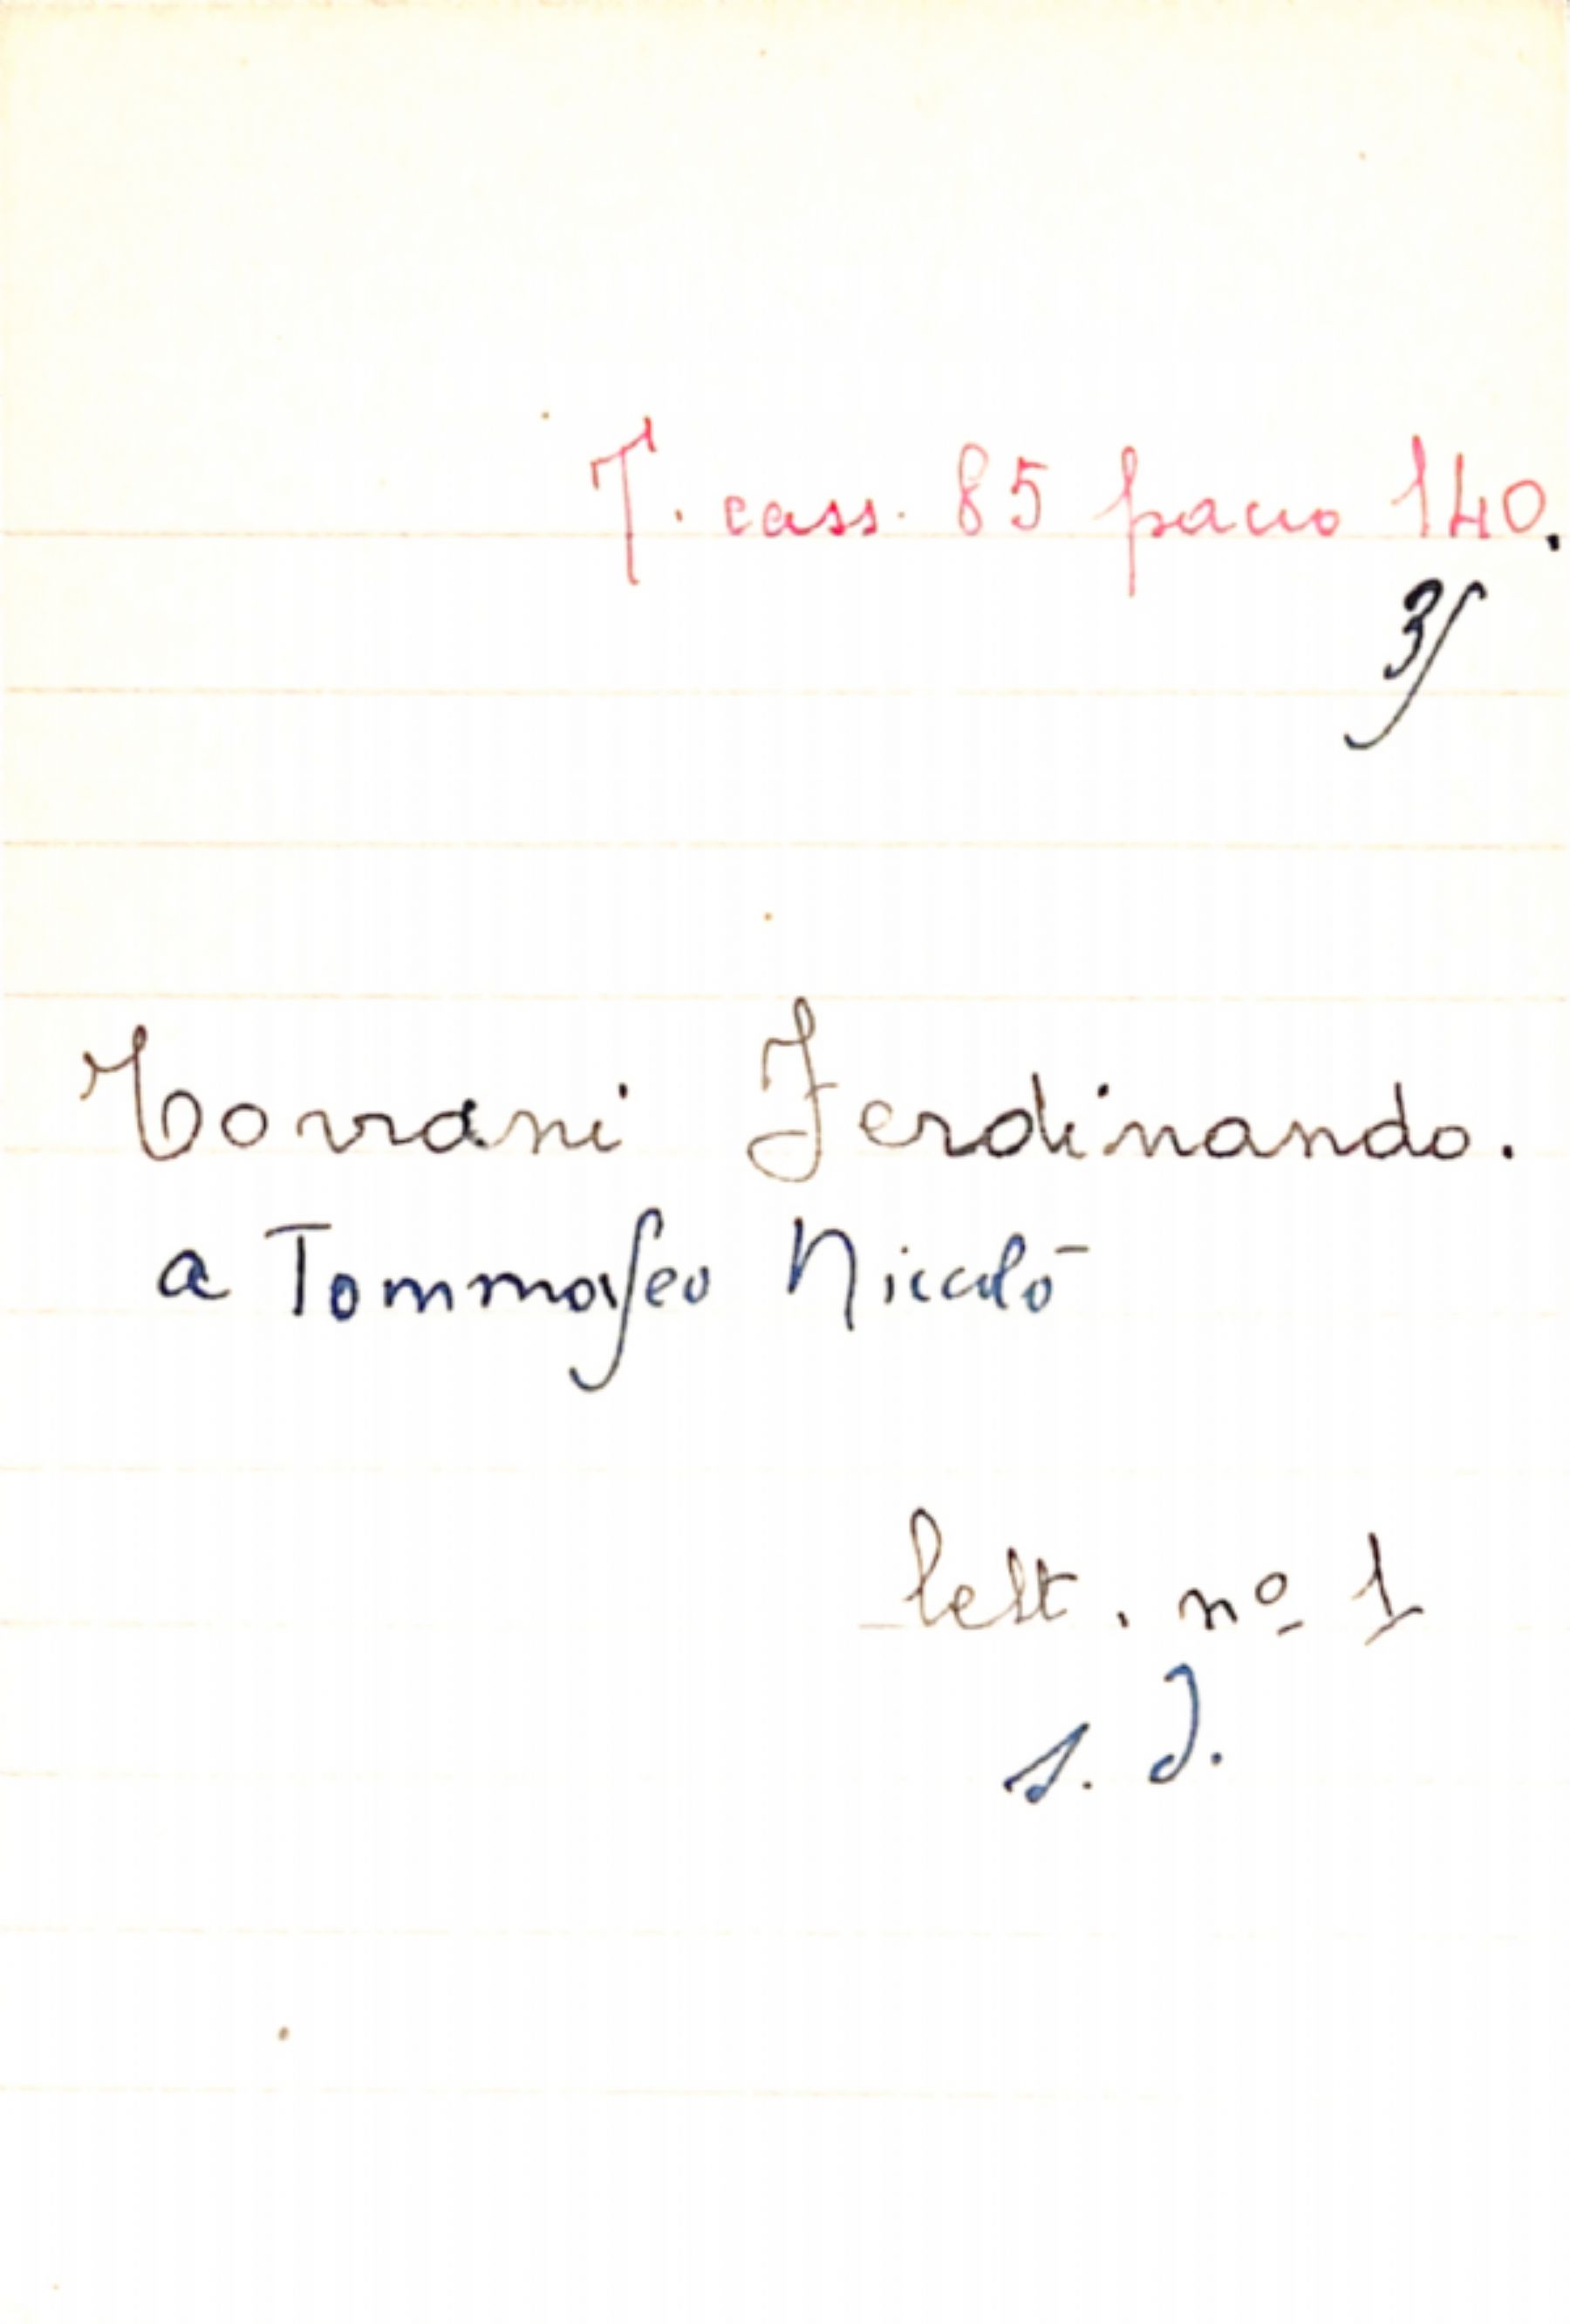 T. cass. 85 pacco 140.
3
Torrani Ferdinando.
a Tommaseo Niccolò
lett. nº 1
s. d.